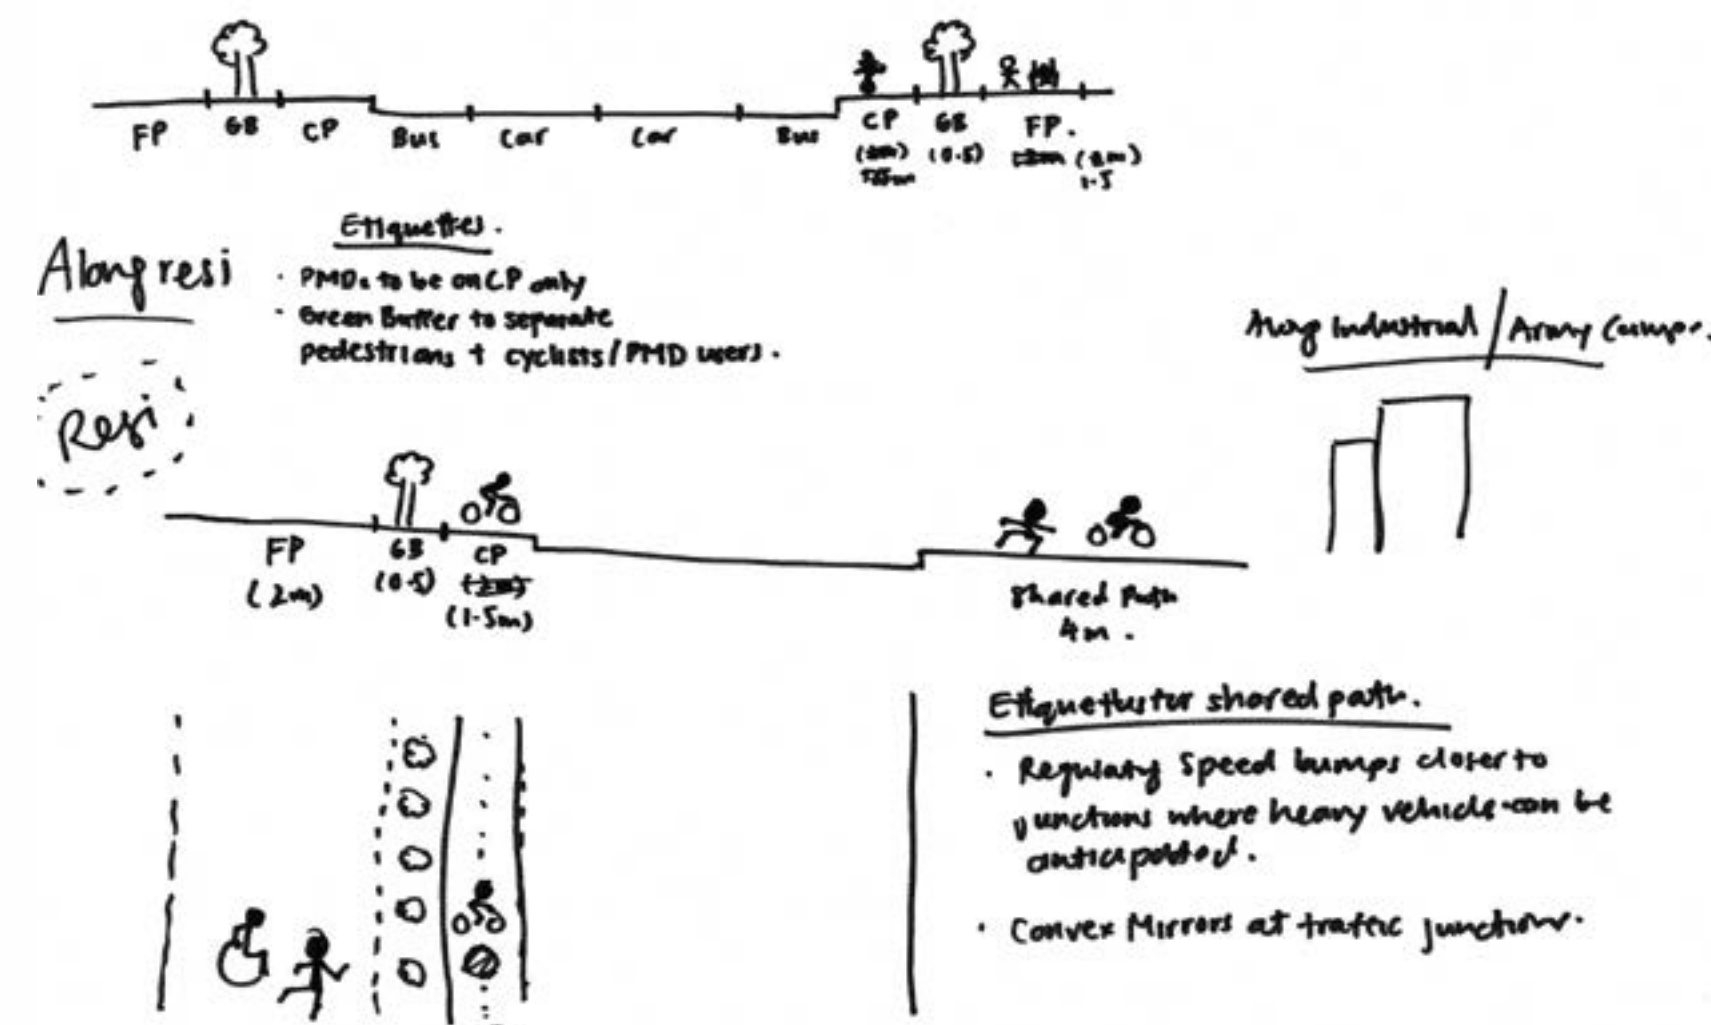 FP GB CP Bus Car Car Bus CP GB FP.
(0.5) (2m)
1.5
Etiquettes.
Along resi
· PMDs to be on CP only
· Green Buffer to separate
pedestrians + cyclists/PMD users.
Along Industrial / Army Camps.
Resi
FP GB CP
(2m) (0.5) (2m)
(1.5m)
Shared Path
4m.
Etiquettes for shared path.
· Regulatory Speed bumps closer to
junctions where heavy vehicle can be
anticipated.
· Convex Mirrors at traffic junctions.